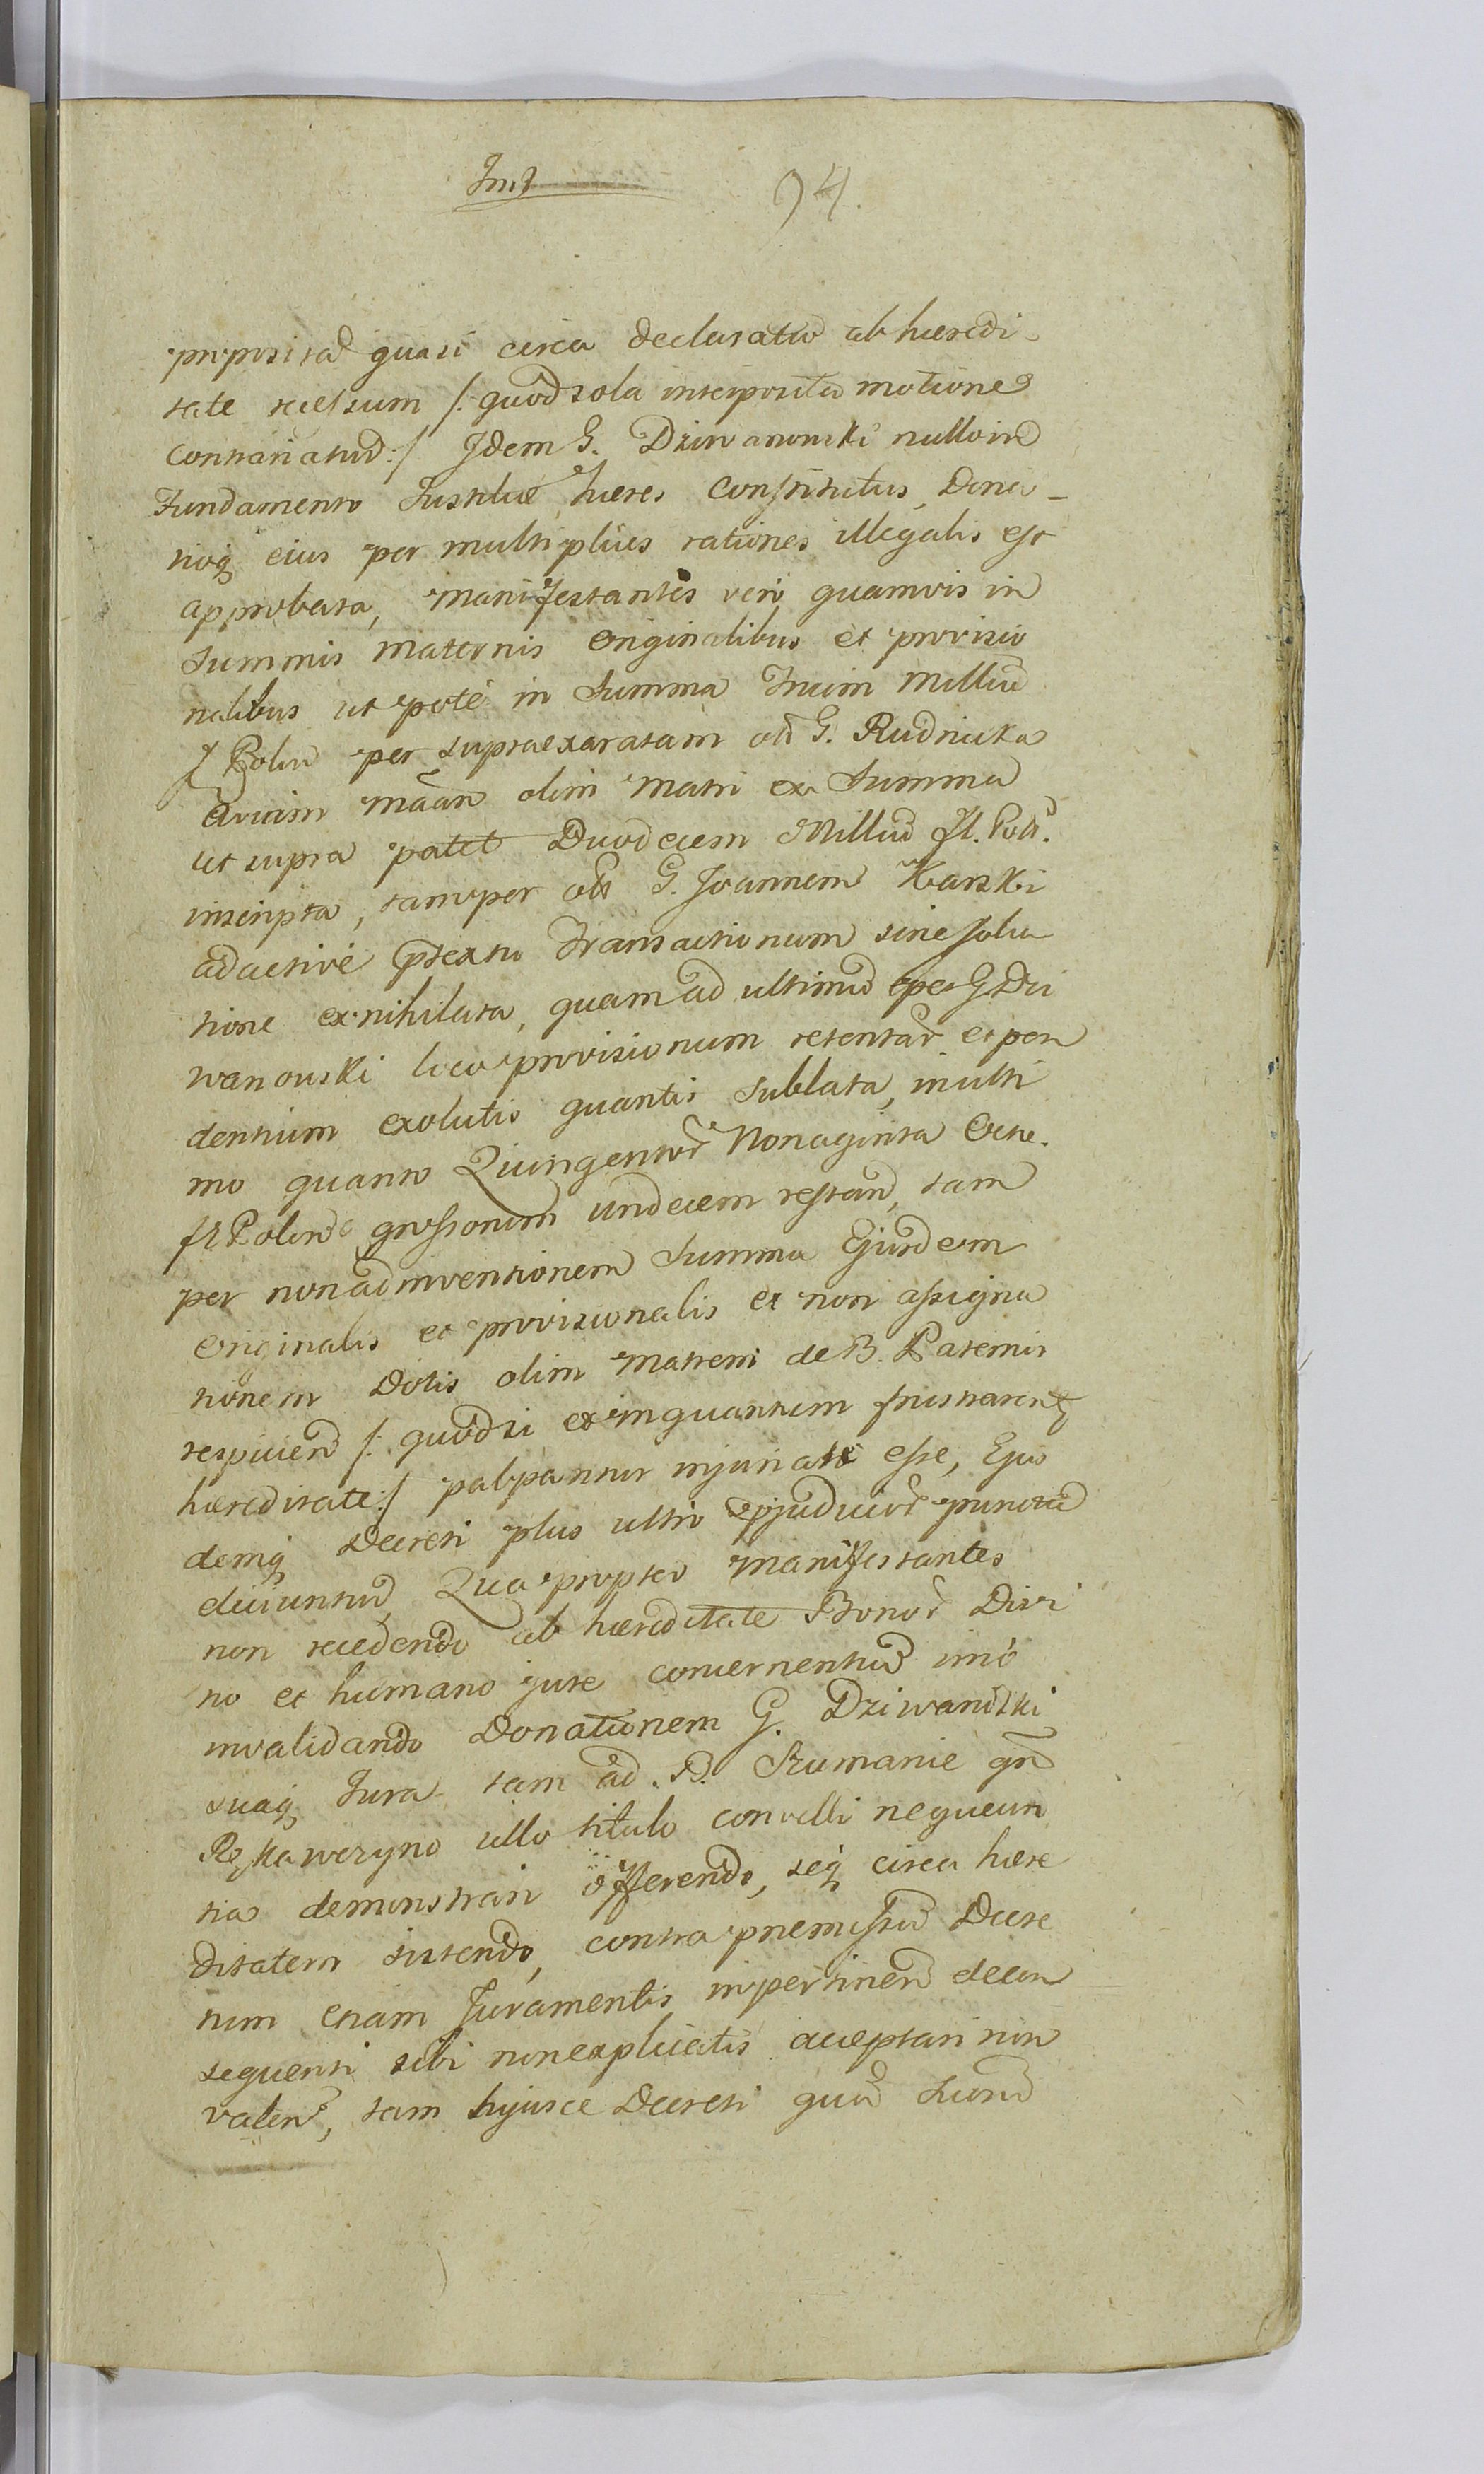 94.
propositad quasi circa declaratio ab haeredi-
tate recessum /: quod sola interposita motione
contrariatur :/ Idem G. Dziwanowski nullo in
Fundamento Justitiae haeres constitutus, Dona-
tioq eius per multiplices rationes illegalis est
approbata, manifestantes vero quamvis in
Summis maternis originalibus et provisio
nalibus ut pote in Summa Trium Millium
f Polon per supraexaratam olim G. Rudnicka
aviam matri ex Summa
ut supra patet Duodecem Millium fl. Poll.
inscripta, tam per olim G. Joannem Karski
adactive ptextu Transactionum sine solu
tione exnihilata, quam ad ultimum per G Dzi
wanowski loco provisionum retentar et pen
dentium exolutis quantis sublata, in ulti
mo quanto Quingentor Nonaginta Octo
fl Polon grossorum undecem restan, tam
per nonadinventionem Summa Ejusdem
originalis et provisionalis et non assigna
tionem Dotis olim matrem de B. Paternis
respicien /: quod si et in quantum frustrarentur
haereditate :/ palpantur injuriati esse, Ejus
demq Decreti plus ultro pjudicior punctum
dicuntur, Quapropter manifestantes
non recedendo ab haereditate Bonor Divi
no et humano jure concernentium imo
invalidando Donationem G. Dziwanowski
suaq Jura tam ad B. Szumanie qm
Roskaweryno ullo titulo convelli nequeun
tia demonstrari offerendo, seq circa haere
ditatem sistendo, contra premissum Decre
tum etiam Juramentis impertinen decon
sequenti sibi non explicatis acceptari non
valen, tam hujusce Decreti quam suorum